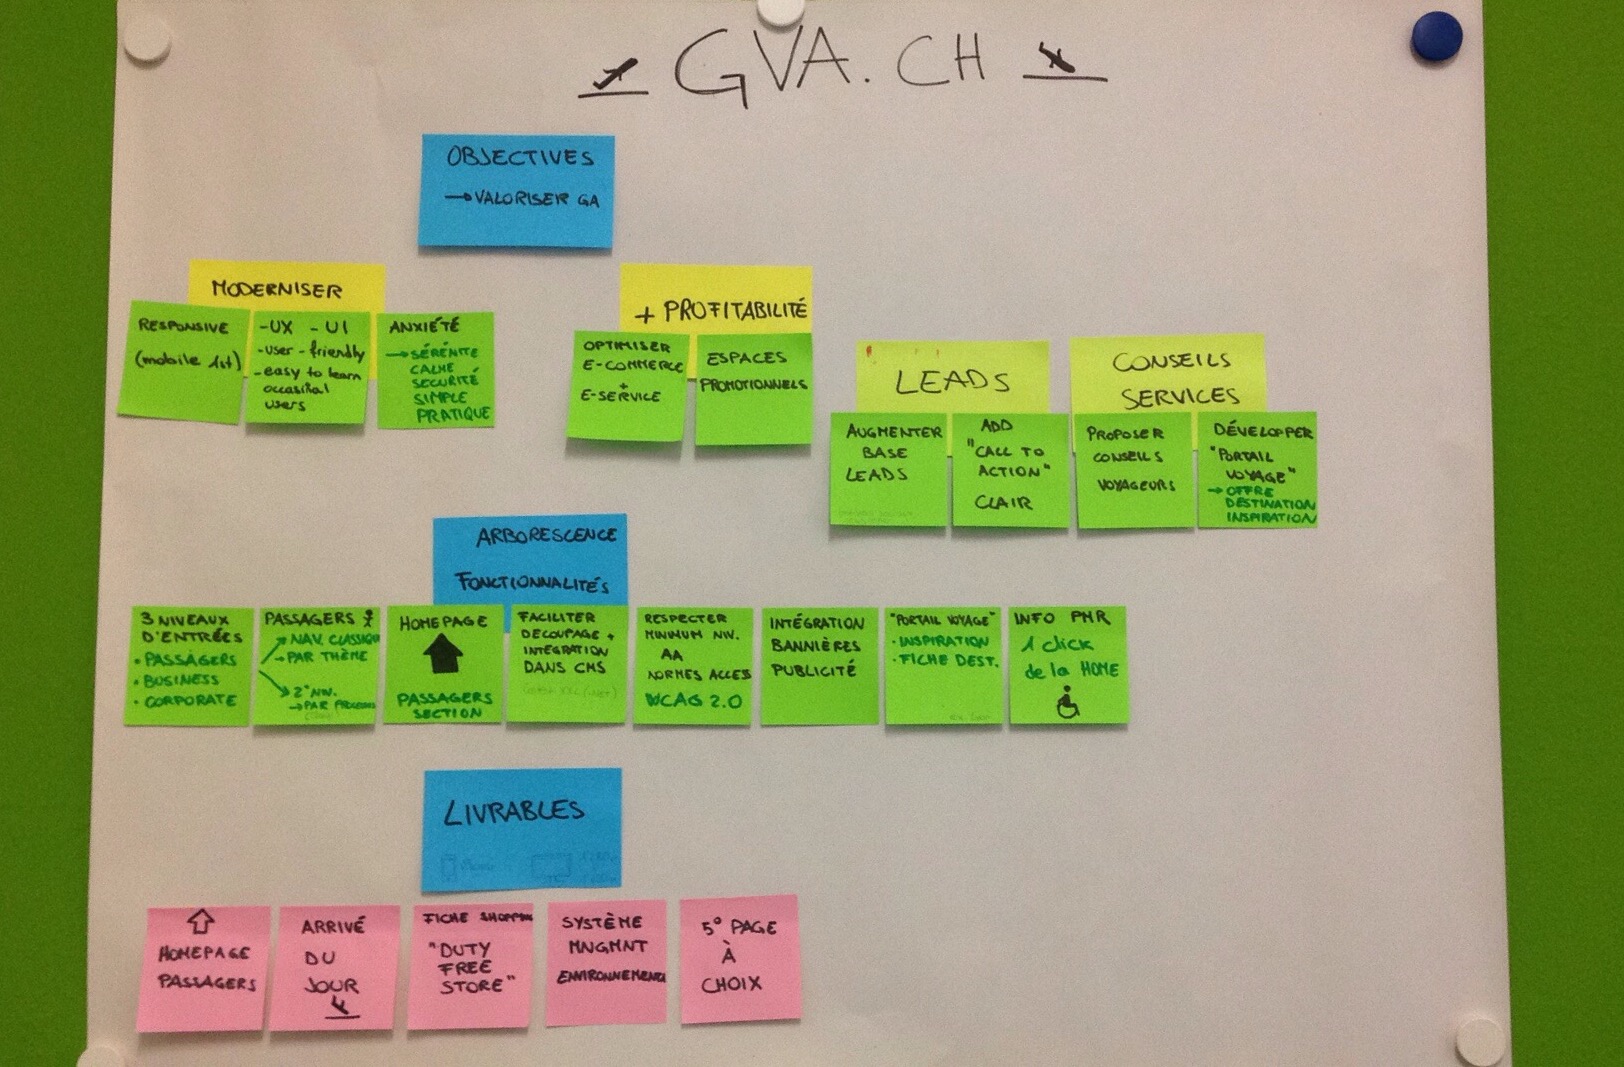 GVA.CH
OBJECTIVES
→ VALORISER GA
MODERNISER
RESPONSIVE
(mobile 1st)
- UX - UI
- user-friendly
- easy to learn
occasinal
users
ANXIÉTÉ
→ SÉRÉNITÉ
CALME
SECURITÉ
SIMPLE
PRATIQUE
+ PROFITABILITÉ
OPTIMISER
E-COMMERCE
+
E-SERVICE
ESPACES
PROMOTIONNELS
LEADS
AUGMENTER
BASE
LEADS
ADD
"CALL TO
ACTION"
CLAIR
CONSEILS
SERVICES
PROPOSER
CONSEILS
VOYAGEURS
DÉVELOPPER
"PORTAIL
VOYAGE"
→ OFFRE
DESTINATION
INSPIRATION
ARBORESCENCE
FONCTIONNALITÉS
3 NIVEAUX
D'ENTRÉES
• PASSAGERS
• BUSINESS
• CORPORATE
PASSAGERS
NAV. CLASSIQUE
→ PAR THÈME
2° NIV.
→ PAR
HOMEPAGE
PASSAGERS
SECTION
FACILITER
DECOUPAGE +
INTÉGRATION
DANS CMS
RESPECTER
MINIMUM NIV.
AA
NORMES ACCES
WCAG 2.0
INTÉGRATION
BANNIÈRES
PUBLICITÉ
"PORTAIL VOYAGE"
• INSPIRATION
• FICHE DEST.
INFO PMR
1 click
de la HOME
LIVRABLES
HOMEPAGE
PASSAGERS
ARRIVÉ
DU
JOUR
FICHE SHOPPIN
"DUTY
FREE
STORE"
SYSTÈME
MNGMNT
ENVIRONNEMENTAL
5° PAGE
À
CHOIX